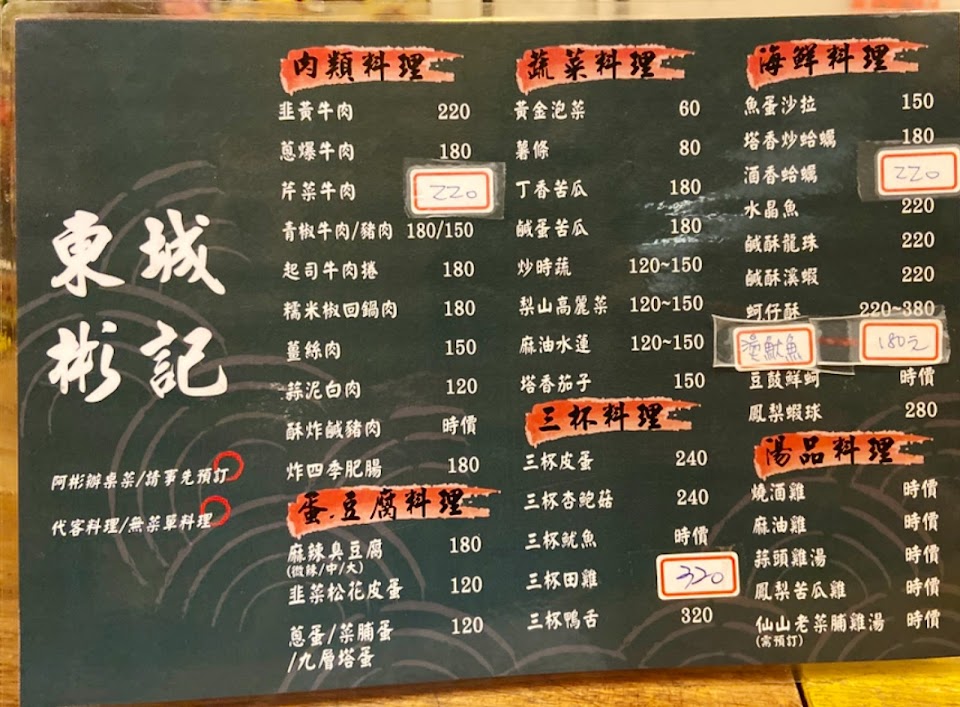 東城
彬記
阿彬辦桌菜/請事先預訂
代客料理/無菜單料理
肉類料理
韭黃牛肉 220
蔥爆牛肉 180
芹菜牛肉 220
青椒牛肉/豬肉 180/150
起司牛肉捲 180
糯米椒回鍋肉 180
薑絲肉 150
蒜泥白肉 120
酥炸鹹豬肉 時價
炸四季肥腸 180
蛋.豆腐料理
麻辣臭豆腐 180
(微辣/中/大)
韭菜松花皮蛋 120
蔥蛋/菜脯蛋 120
/九層塔蛋
蔬菜料理
黃金泡菜 60
薯條 80
丁香苦瓜 180
鹹蛋苦瓜 180
炒時蔬 120~150
梨山高麗菜 120~150
麻油水蓮 120~150
塔香茄子 150
三杯料理
三杯皮蛋 240
三杯杏鮑菇 240
三杯魷魚 時價
三杯田雞 320
三杯鴨舌 320
海鮮料理
魚蛋沙拉 150
塔香炒蛤蠣 180
酒香蛤蠣 220
水晶魚 220
鹹酥龍珠 220
鹹酥溪蝦 220
蚵仔酥 220~380
魷魚 180元
豆鼓鮮蚵 時價
鳳梨蝦球 280
湯品料理
燒酒雞 時價
麻油雞 時價
蒜頭雞湯 時價
鳳梨苦瓜雞 時價
仙山老菜脯雞湯 時價
(需預訂)